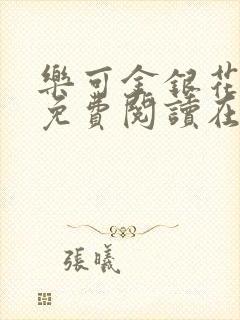 樂可金銀花
免費閱讀在
張曦